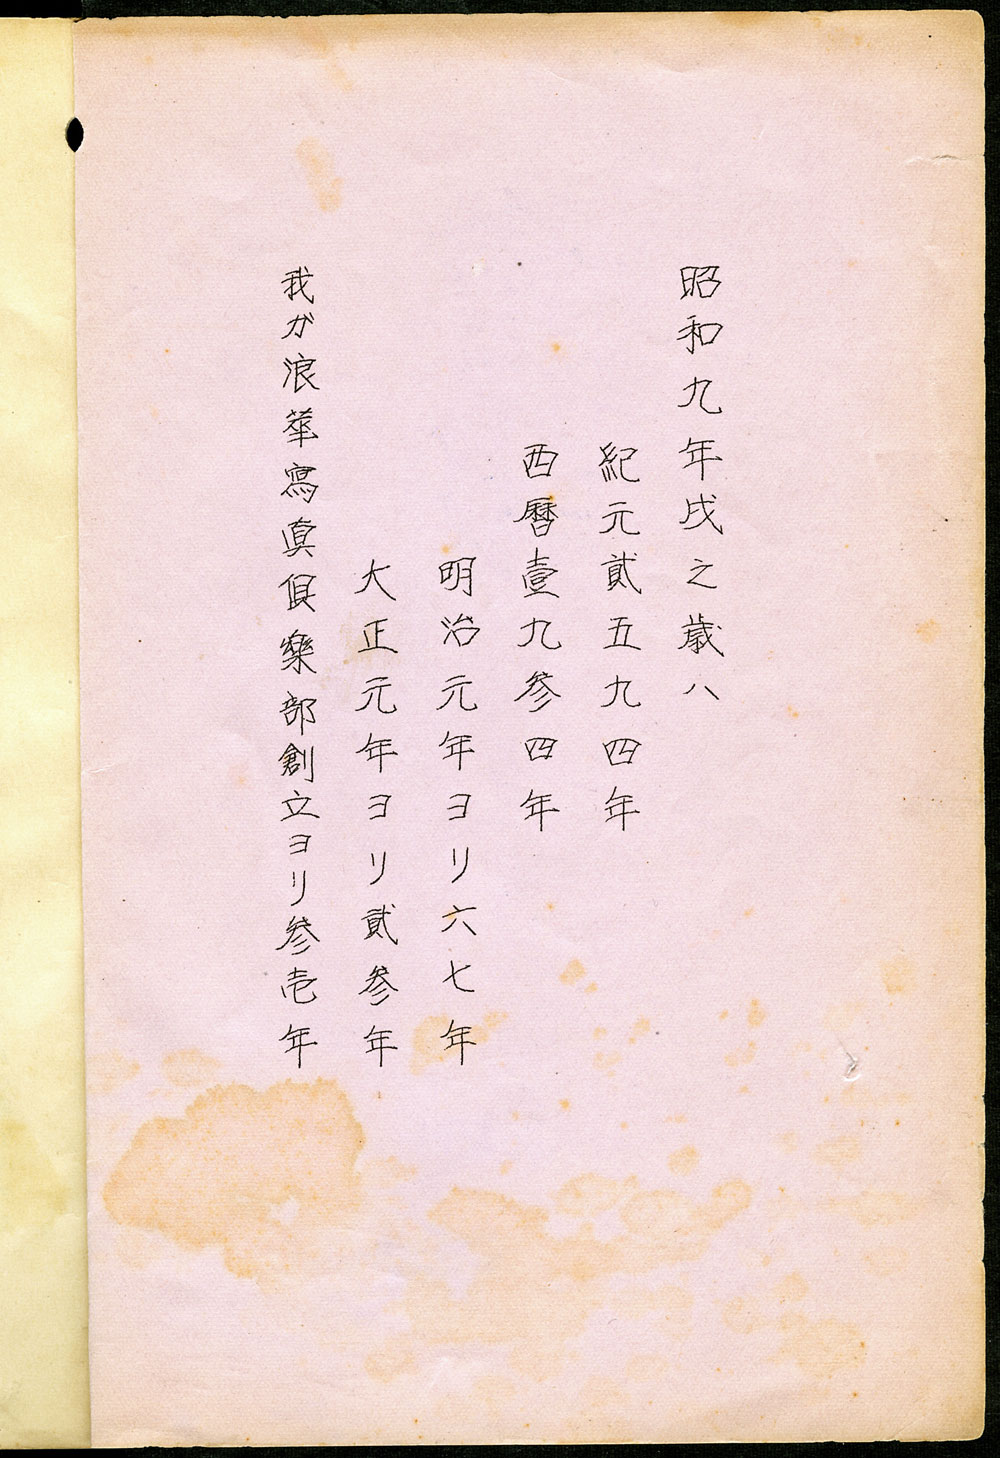 昭和九年戌之歳ハ
紀元貳五九四年
西暦壹九参四年
明治元年ヨリ六七年
大正元年ヨリ貳参年
我ガ浪華寫眞倶樂部創立ヨリ参壱年